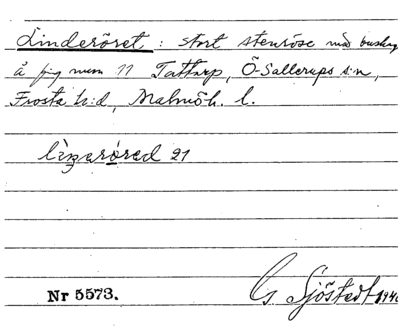 Linderöret: stort stenröse med buskar
å fig num 11 Tattarp, Ö-Sallerups s:n,
Frosta h:d, Malmöh. l.
21
Nr 5573.
G Sjöstedt 1940